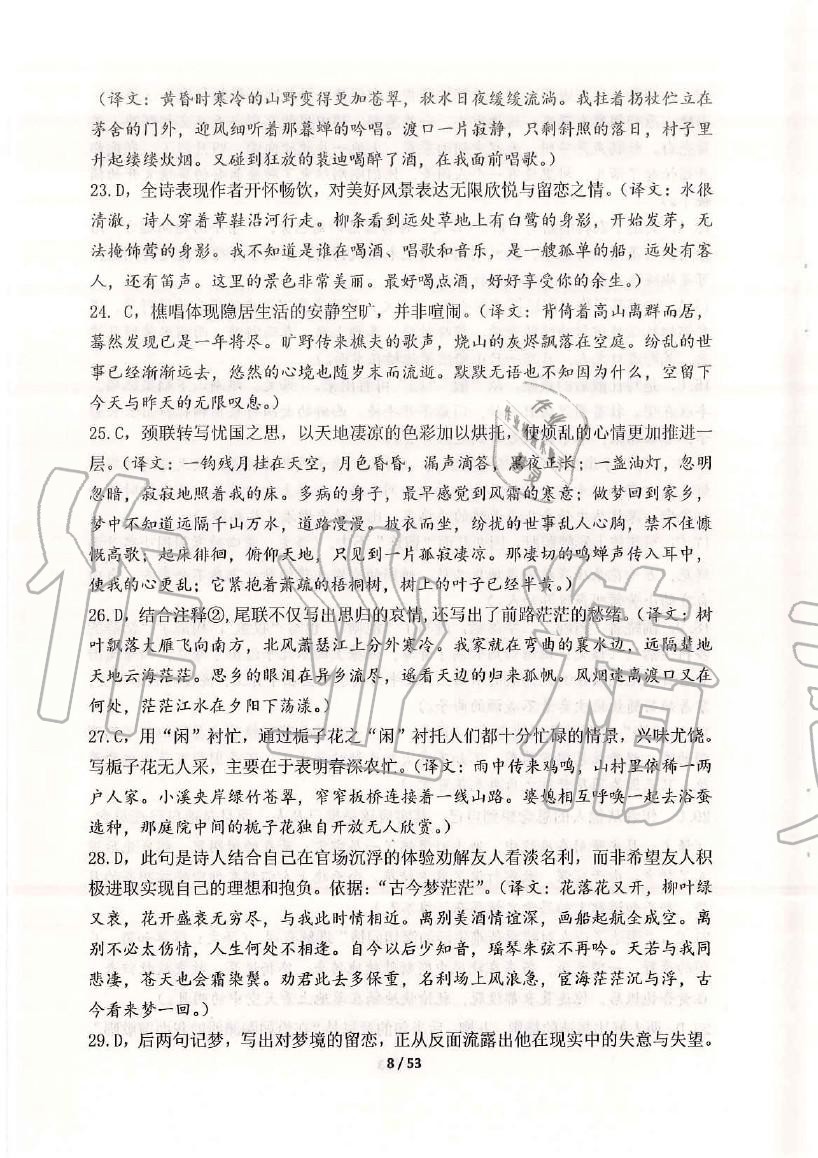 （译文：黄昏时寒冷的山野变得更加苍翠，秋水日夜缓缓流淌。我拄着拐杖伫立在
茅舍的门外，迎风细听着那暮蝉的吟唱。渡口一片寂静，只剩斜照的落日，村子里
升起缕缕炊烟。又碰到狂放的裴迪喝醉了酒，在我面前唱歌。）
23.D，全诗表现作者开怀畅饮，对美好风景表达无限欣悦与留恋之情。（译文：水很
清澈，诗人穿着草鞋沿河行走。柳条看到远处草地上有白鹭的身影，开始发芽，无
法掩饰莺的身影。我不知道是谁在喝酒、唱歌和音乐，是一艘孤单的船，远处有客
人，还有笛声。这里的景色非常美丽。最好喝点酒，好好享受你的余生。）
24. C，樵唱体现隐居生活的安静空旷，并非喧闹。（译文：背倚着高山离群而居，
蓦然发现已是一年将尽。旷野传来樵夫的歌声，烧山的灰烬飘落在空庭。纷乱的世
事已经渐渐远去，悠然的心境也随岁末而流逝。默默无语也不知因为什么，空留下
今天与昨天的无限叹息。）
25.C，颈联转写忧国之思，以天地凄凉的色彩加以烘托，使烦乱的心情更加推进一
层。（译文：一钩残月挂在天空，月色昏昏，漏声滴答，黑夜正长；一盏油灯，忽明
忽暗，寂寂地照着我的床。多病的身子，最早感觉到风霜的寒意；做梦回到家乡，
梦中不知道远隔千山万水，道路漫漫。披衣而坐，纷扰的世事乱人心胸，禁不住慷
慨高歌；起床徘徊，俯仰天地，只见到一片孤寂凄凉。那凄切的鸣蝉声传入耳中，
使我的心更乱；它紧抱着萧疏的梧桐树，树上的叶子已经半黄。）
26.D，结合注释②,尾联不仅写出思归的哀情,还写出了前路茫茫的愁绪。（译文：树
叶飘落大雁飞向南方，北风萧瑟江上分外寒冷。我家就在弯曲的襄水边，远隔楚地
天地云海茫茫。思乡的眼泪在异乡流尽，遥看天边的归来孤帆。风烟迷离渡口又在
何处，茫茫江水在夕阳下荡漾。）
27.C，用“闲”衬忙，通过栀子花之“闲”衬托人们都十分忙碌的情景，兴味尤饶。
写栀子花无人采，主要在于表明春深农忙。（译文：雨中传来鸡鸣，山村里依稀一两
户人家。小溪夹岸绿竹苍翠，窄窄板桥连接着一线山路。婆媳相互呼唤一起去浴蚕
选种，那庭院中间的栀子花独自开放无人欣赏。）
28.D，此句是诗人结合自己在官场沉浮的体验劝解友人看淡名利，而非希望友人积
极进取实现自己的理想和抱负。依据：“古今梦茫茫”。（译文：花落花又开，柳叶绿
又衰，花开盛衰无穷尽，与我此时情相近。离别美酒情谊深，画船起航全成空。离
别不必太伤情，人生何处不相逢。自今以后少知音，瑶琴朱弦不再吟。天若与我同
悲凄，苍天也会霜染鬓。劝君此去多保重，名利场上风浪急，宦海茫茫沉与浮，古
今看来梦一回。）
29.D，后两句记梦，写出对梦境的留恋，正从反面流露出他在现实中的失意与失望。
8 / 53
作业精灵
作业精